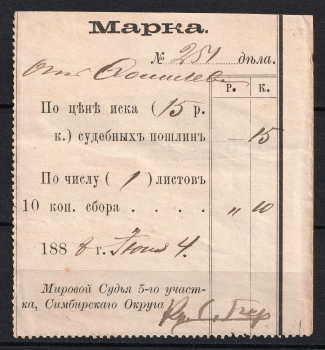 Марка.
№ 251 дѣла.
Отъ
Р. К.
По цѣнѣ иска (15 р.
к.) судебныхъ пошлинъ — 15
По числу (1) листовъ
10 коп. сбора . . . . „ 10
1888 г. Іюня 4.
Мировой Судья 5-го участ-
ка, Симбирскаго Округа